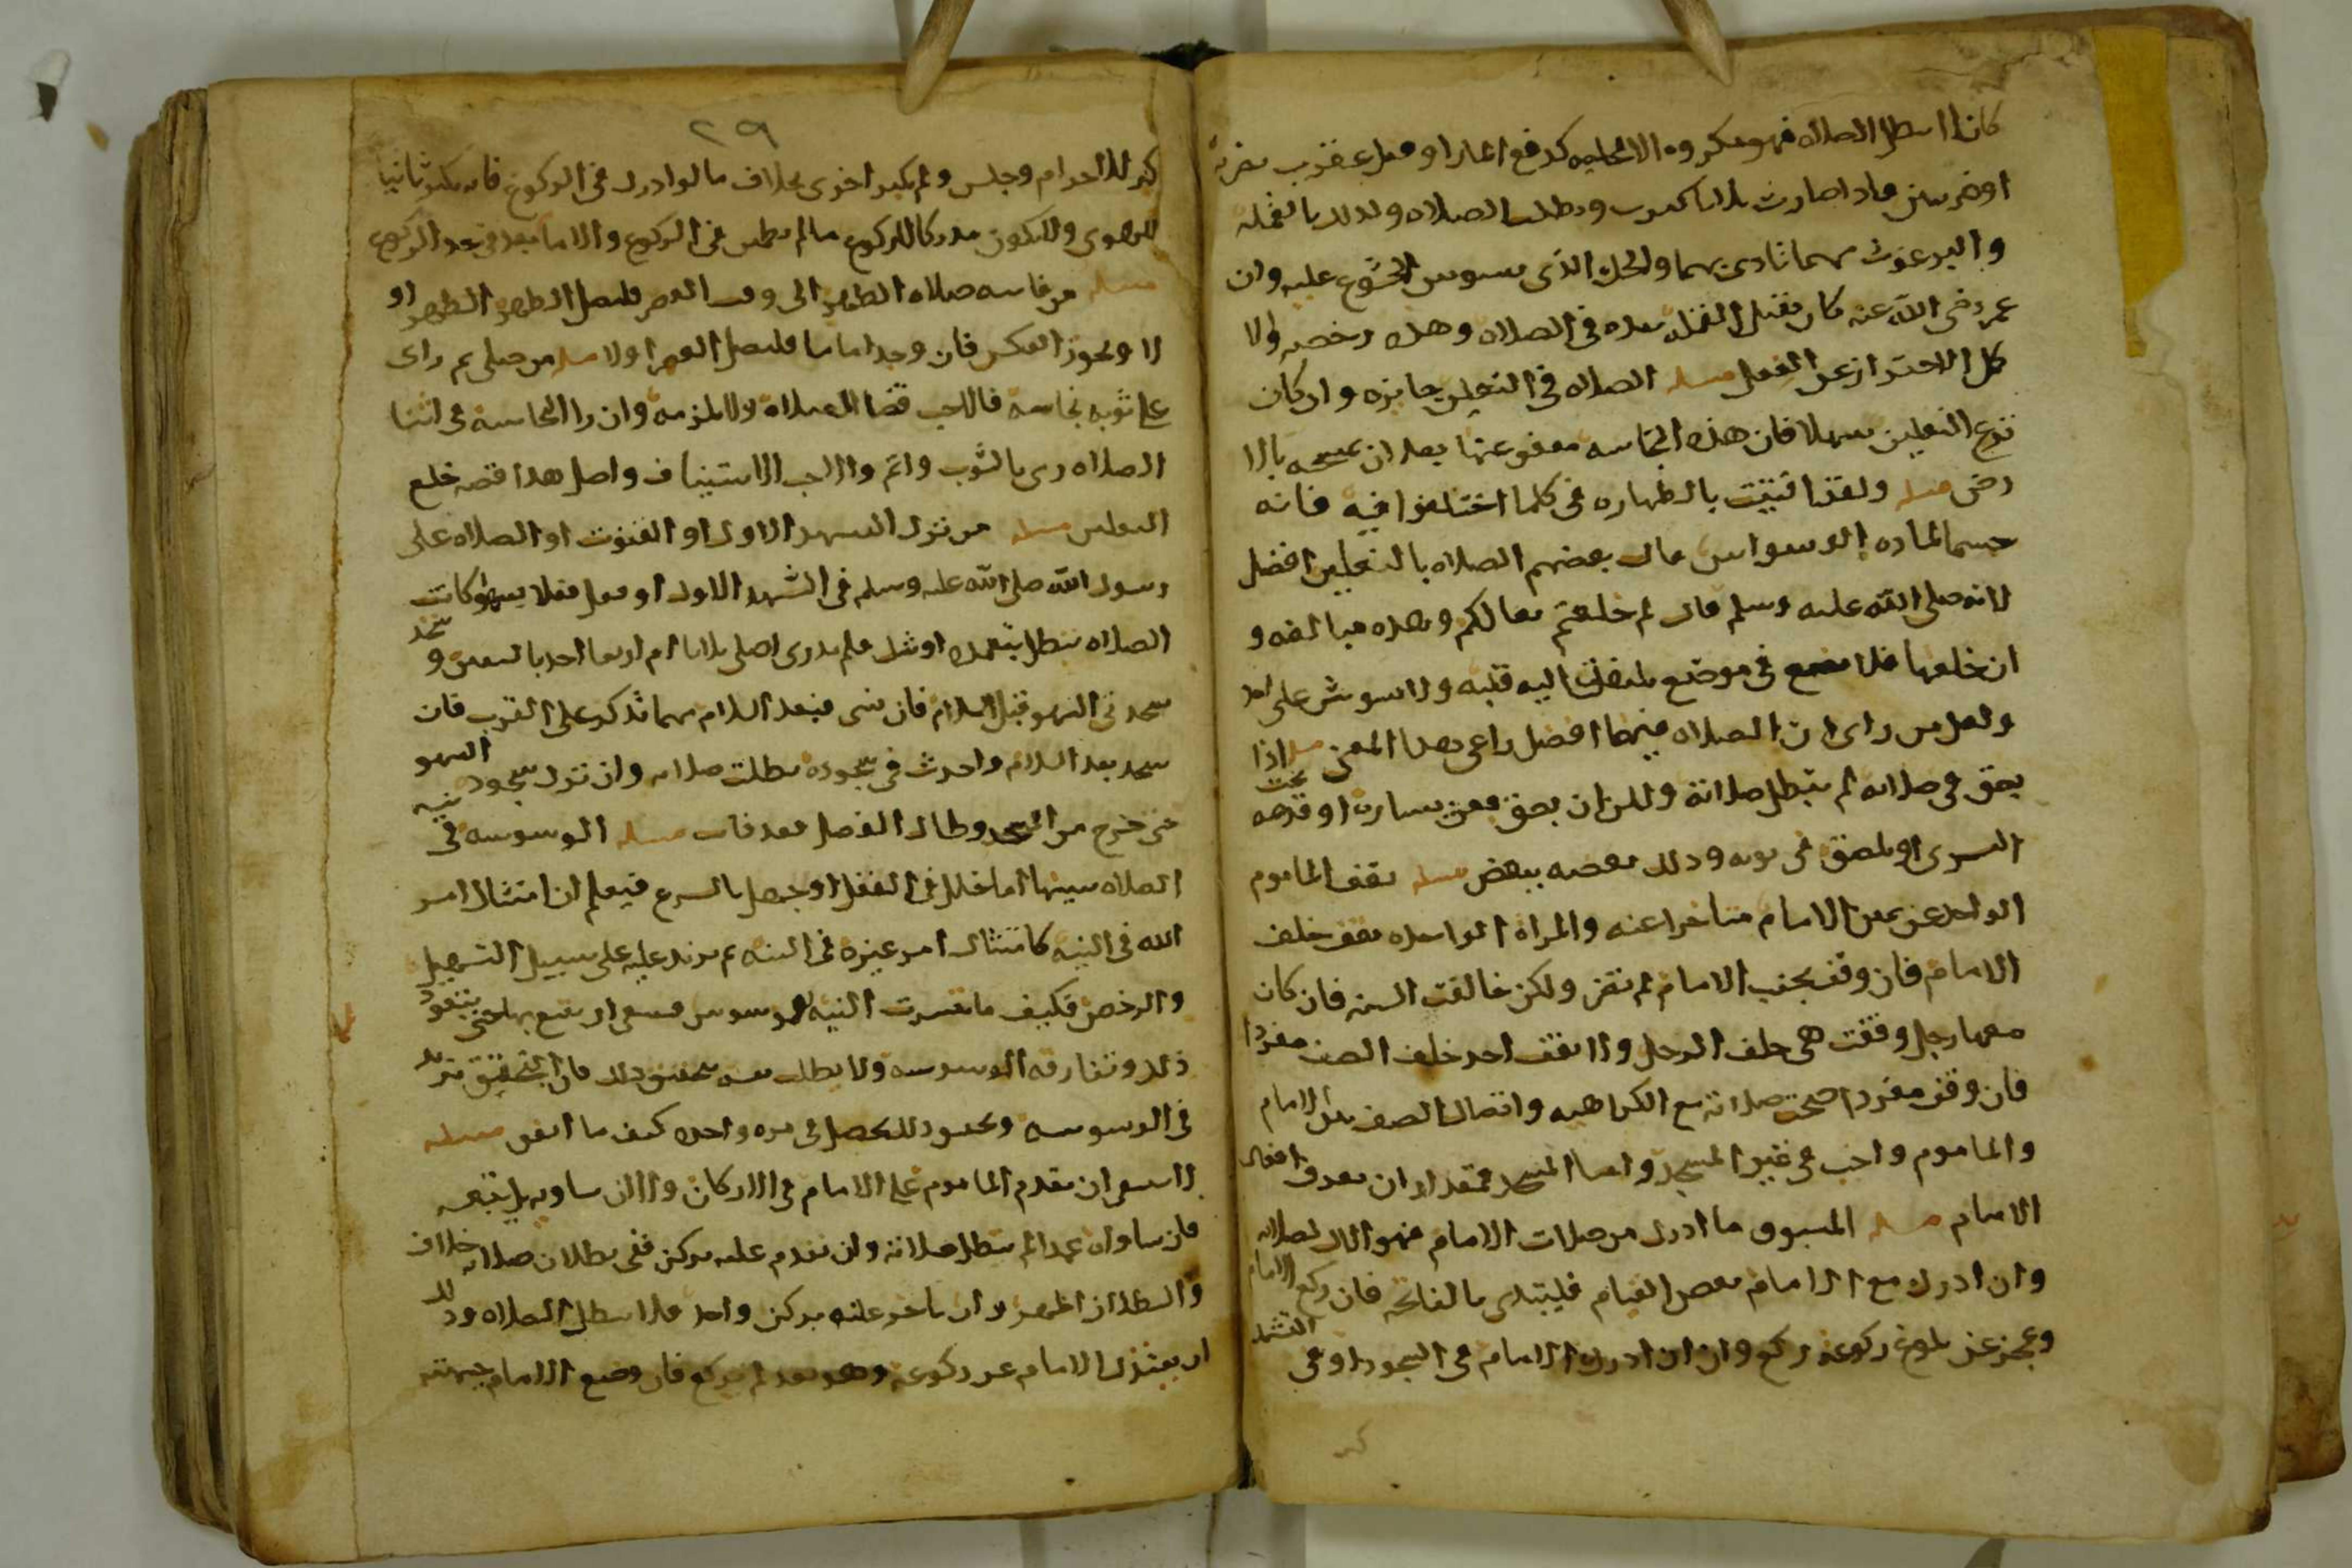 كان لا يبطل الصلاه فهو مكروه الا لحاجه كدفع المار او قتل عقرب بضربه
او ضربتين فاذا صارت ثلاثا كثرت وبطلت الصلاه وكذلك بالقمله
والبرغوث مهما تاذى بهما والحك الذى يشوش الخشوع عليه وان
عمر رضى الله عنه كان يقتل القمله بيده فى الصلاه وهذه رخصه والا
كل الاحتراز عن الفعل مسله الصلاه فى النعلين جايزه وان كان
نزع النعلين سهلا فان هذه النجاسه معفو عنها بعد ان يمسحه بالا
رض مسله ولقد افتيت بالطهاره فى كلما اختلفوا فيه فانه
حسما لماده الوسواس قال بعضهم الصلاه بالنعلين افضل
لانه صلى الله عليه وسلم قال لم خلعتم نعالكم وهذه مبالغه و
ان خلعها فلا يضع فى موضع يلتفت اليه قلبه ولا يشوش على احد
ولعل من راى ان الصلاه فيهما افضل راعى هذا المعنى مسله اذا
بصق فى صلاته لم تبطل صلاته ولكن ان بصق فعن يساره او تحت قدمه
اليسرى او يبصق فى ثوبه ودلك بعضه ببعض مسله يقف الماموم
الواحد عن يمين الامام متاخرا عنه والمراة الواحده تقف خلف
الامام فان وقفت بجنب الامام لم تضر ولكن خالفت السنه فان كان
معها رجل وقفت هى خلف الرجل ولا يقف احد خلف الصف منفردا
فان وقف مفردا صحت صلاته مع الكراهيه واتصال الصف بين الامام
والماموم واجب فى غير المسجد واما المسجد فمقدار ان يعرف افعال
الامام مسله المسبوق ما ادرك من صلات الامام فهو اول صلاته
وان ادرك مع الامام بعض القيام فليبتدى بالفاتحه فان ركع الامام
وعجز عن بلوغ ركوعه ركع وان ادرك الامام فى السجود او فى التشهد
كبر
٢٩
كبر للاحرام وجلس ولم يكبر اخرى بخلاف ما لو ادرك فى الركوع فانه يكبر ثانيا
للهوى ولا يكون مدركا للركوع ما لم يطمئن فى الركوع والامام بعد فى حد الركوع
مسله من فاتته صلاه الظهر الى وقت العصر فليصل الظهر او
لا ويجوز العكس فان وجد اماما فليصل العصر اولا مسله من صلى ثم راى
على ثوبه نجاسه فالاحب قضا الصلاة ولا يلزمه وان راى النجاسه فى اثنا
الصلاه رمى بالثوب واتم والاحب الاستيناف واصل هذا قصه خلع
النعلين مسله من ترك التشهد الاول او القنوت او الصلاه على
رسول الله صلى الله عليه وسلم فى التشهد الاول او فعل فعلا يسهو كانت
الصلاه تبطل بتعمده او شك فلم يدرى اصلى ثلاثا ام اربعا اخذ باليقين و
سجد سجدتى السهو قبل السلام فان نسى فبعد السلام مهما تذكر على القرب فان
سجد بعد السلام واحدث فى سجوده بطلت صلاته وان ترك سجود السهو
حتى خرج من المسجد وطال الفصل فقد فات مسله الوسوسه فى نيه
الصلاه سببها اما خلل فى العقل او جهل بالشرع فيعلم ان امتثال امر
الله فى النيه كامتثال امر غيره فى النيه ثم يزيد عليه على سبيل التسهيل
والرخص فكيف ما تيسرت النيه للموسوس فينبغى ان يقنع بها حتى يتعود
ذلك وتفارقه الوسوسه ولا يطالب نفسه بتحقيق ذلك فان التحقيق تزيد
فى الوسوسه ومقصود ذلك يحصل فى مره واحده كيف ما اتفق مسله
لا ينبغى ان يتقدم الماموم على الامام فى الاركان ولا ان يساويه بل يتبعه
فان ساواه عمدا لم تبطل صلاته وان تقدم عليه بركن ففى بطلان صلاته خلاف
والبطلان اظهر وان تاخر عنه بركن واحد فلا تبطل الصلاه وذلك
ان يعتدل الامام عن ركوعه وهو بعد لم يركع فان وضع الامام جبهته